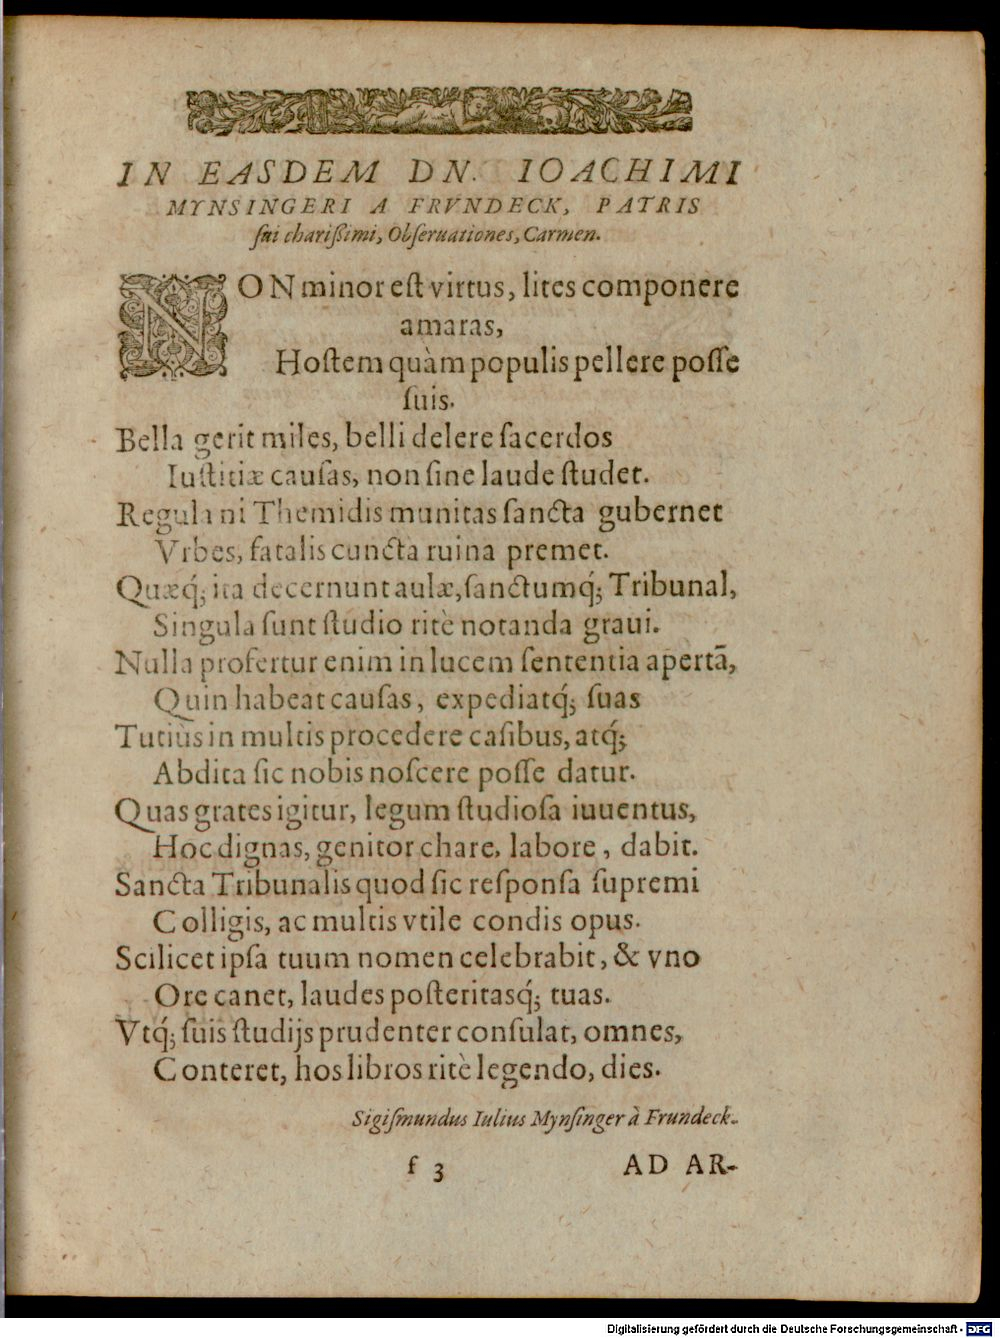 IN EASDEM DN. IOACHIMI
MYNSINGERI A FRVNDECK, PATRIS
ſui chariſsimi, Obſeruationes, Carmen.
NON minor eſt virtus, lites componere
amaras,
Hoſtem quàm populis pellere poſſe
ſuis.
Bella gerit miles, belli delere ſacerdos
Iuſtitiæ cauſas, non ſine laude ſtudet.
Regula ni Themidis munitas ſancta gubernet
Vrbes, fatalis cuncta ruina premet.
Quæq́; ita decernunt aulæ, ſanctumq́; Tribunal,
Singula ſunt ſtudio ritè notanda graui.
Nulla profertur enim in lucem ſententia apertā,
Quin habeat cauſas, expediatq́; ſuas
Tutiùs in multis procedere caſibus, atq́;
Abdita ſic nobis noſcere poſſe datur.
Quas grates igitur, legum ſtudioſa iuuentus,
Hoc dignas, genitor chare, labore, dabit.
Sancta Tribunalis quod ſic reſponſa ſupremi
Colligis, ac multis vtile condis opus.
Scilicet ipſa tuum nomen celebrabit, & vno
Ore canet, laudes poſteritasq́; tuas.
Vtq́; ſuis ſtudijs prudenter conſulat, omnes,
Conteret, hos libros ritè legendo, dies.
Sigiſmundus Iulius Mynſinger à Frundeck.
f 3 AD AR-
Digitalisierung gefördert durch die Deutsche Forschungsgemeinschaft - DFG